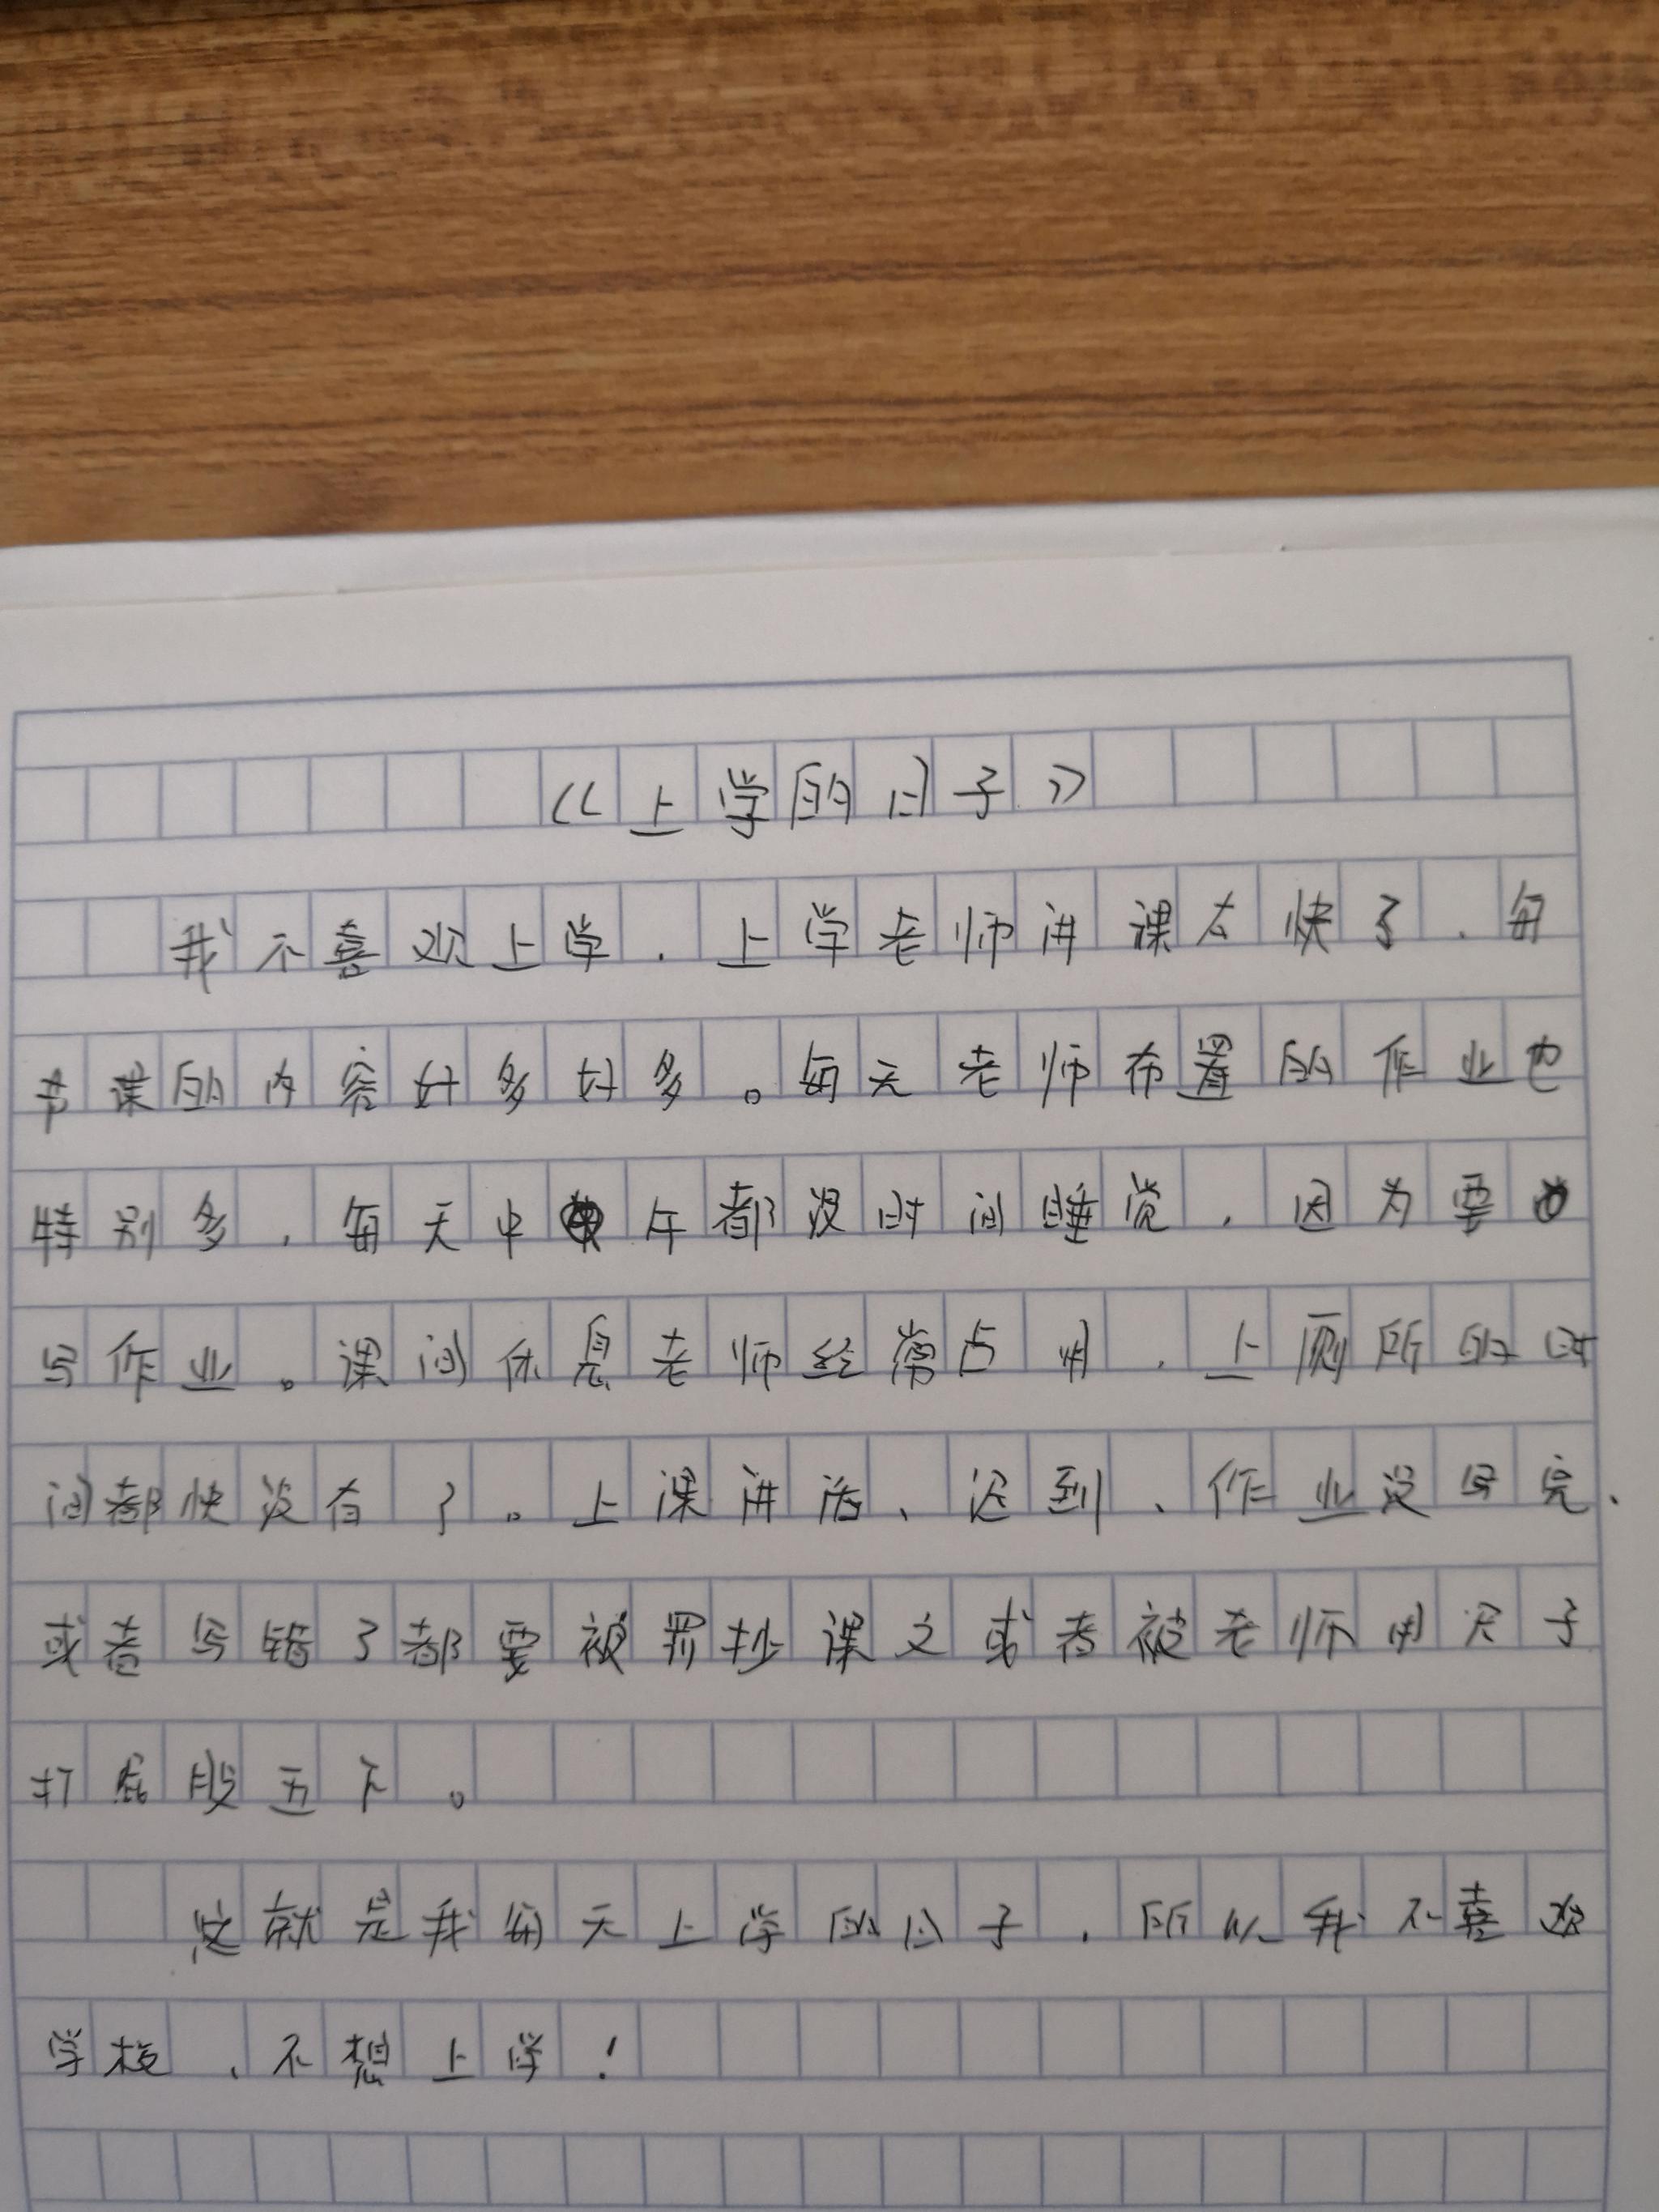 《上学的日子》
我不喜欢上学，上学老师讲课太快了，每
节课的内容好多好多。每天老师布置的作业也
特别多，每天中午都没时间睡觉，因为要
写作业。课间休息老师经常占用，上厕所的时
间都快没有了。上课讲话、迟到、作业没写完、
或者写错了都要被罚抄课文或者被老师用尺子
打屁股五下。
这就是我每天上学的日子，所以我不喜欢
学校，不想上学！